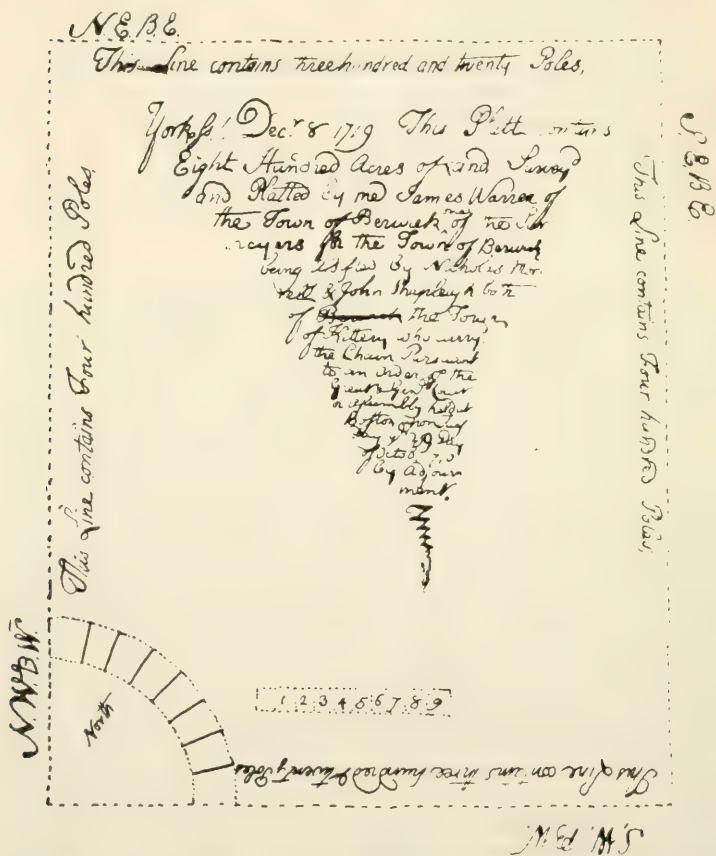 N. E. B. E.
This Line contains three hundred and twenty Poles,
S. E. B E.
This Line contains Four hundred Poles,
Yorkss! Decr 8 1719 This Platt contains
Eight Hundred Acres of Land Survey'd
and Platted by me James Warren of
the Town of Berwick one of the Sur
veyers for the Town of Berwick
being assisted by Nicholas Mor
rell & John Shapleigh both
of Berwick the Town
of Kittery who carry'd
the Chain Pursuant
to an order of the
Great & Genll Court
or Assembly held at
Boston on
Day ye 29 Day
of Octob
by Adjourn
ment.
This Line contains Four hundred Poles
N. W. B. W.
North
1 2 3 4 5 6 7 8 9
This Line contains three hundred & twenty Poles
S. W. B. W.